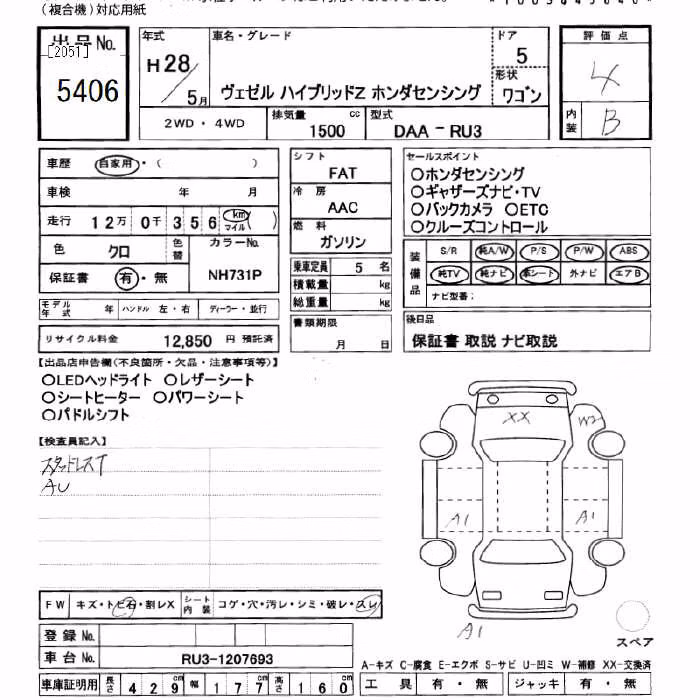 (複合機)対応用紙
出品No.
[2051]
5406
年式
H28
5月
車名・グレード
ヴェゼル ハイブリッドZ ホンダセンシング
ドア
5
形状
ワゴン
評価点
4
内装
B
2WD・4WD
排気量
1500 cc
型式
DAA-RU3
車歴 自家用・( )
車検 年 月
走行 12万0千356 km マイル ( )
色 クロ
色替
カラーNo.
NH731P
保証書 有・無
モデル年式 年 ハンドル 左・右 ディーラー・並行
リサイクル料金 12,850 円 預託済
シフト
FAT
冷房
AAC
燃料
ガソリン
乗車定員 5 名
積載量 kg
総重量 kg
書類期限
月 日
セールスポイント
○ホンダセンシング
○ギャザーズナビ・TV
○バックカメラ ○ETC
○クルーズコントロール
装備品
S/R 純A/W P/S P/W ABS
純TV 純ナビ 革シート 外ナビ エアB
ナビ型番:
後日品
保証書 取説 ナビ取説
【出品店申告欄(不良箇所・欠品・注意事項等)】
○LEDヘッドライト ○レザーシート
○シートヒーター ○パワーシート
○パドルシフト
【検査員記入】
スタッドレスT
AU
XX
W2
A1
A1
A1
スペア
FW キズ・トビ石・割レX
シート内装 コゲ・穴・汚レ・シミ・破レ・スレ
登録No.
車台No. RU3-1207693
車庫証明用 長さ 429cm 幅 177cm 高さ 160cm
A-キズ C-腐食 E-エクボ S-サビ U-凹ミ W-補修 XX-交換済
工具 有・無 ジャッキ 有・無